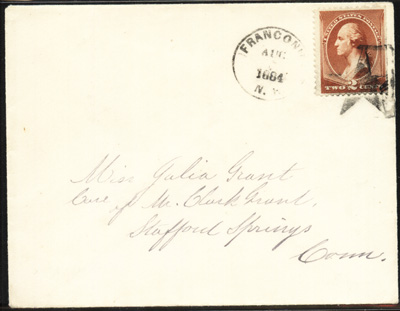 FRANCONI
AUG
1884
N.
UNITED STATES POSTAGE
TWO 2 CENTS
Miss Julia Grant
Care of Mr. Clark Grant.
Stafford Springs
Conn.